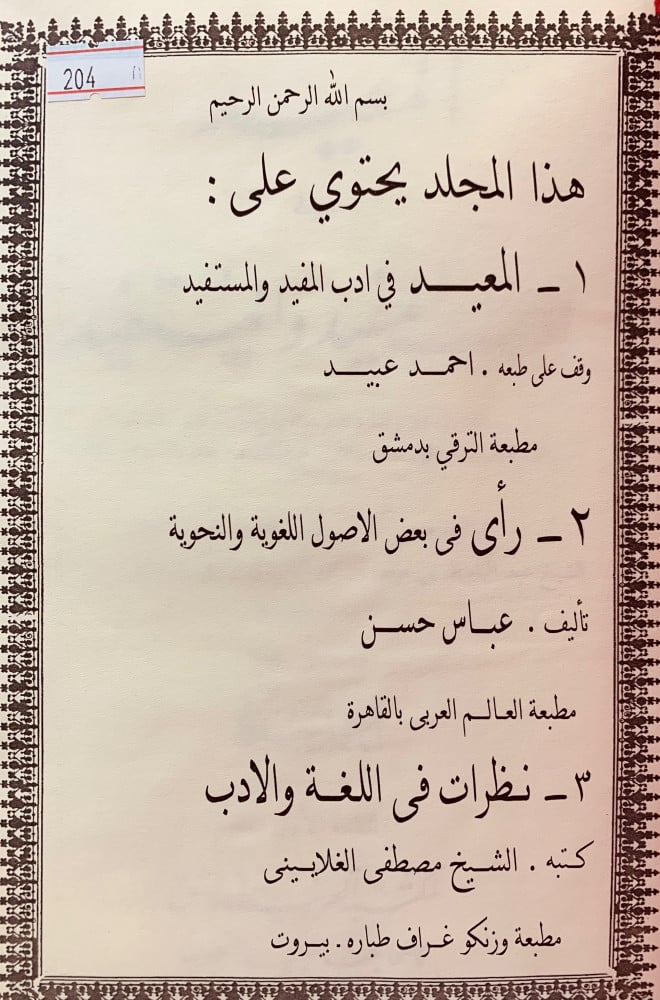 204
بسم الله الرحمن الرحيم
هذا المجلد يحتوي على :
١ ـ المعيـــد في ادب المفيد والمستفيد
وقف على طبعه . احمــد عبيــد
مطبعة الترقي بدمشق
٢ ـ رأى فى بعض الاصول اللغوية والنحوية
تأليف . عبــاس حســن
مطبعة العــالــم العربى بالقاهرة
٣ ـ نـظرات فى اللغــة والادب
كـتبه . الشــيخ مصطفى الغلايــينى
مطبعة وزنكو غــراف طباره . بيــروت